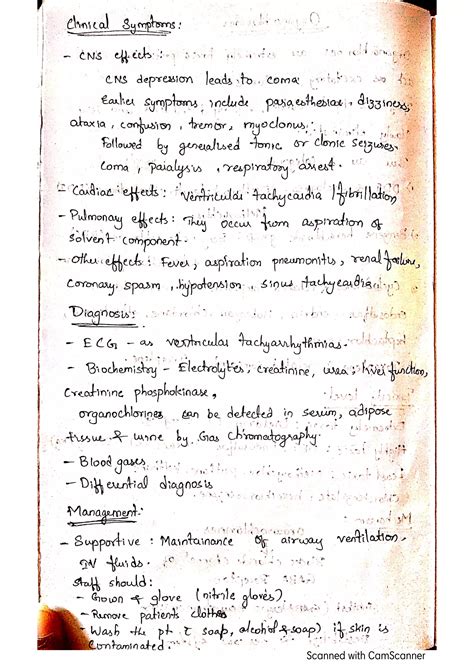 Clinical Symptoms:
- CNS effects:
CNS depression leads to coma
Earlier symptoms include paraesthesiae, dizziness,
ataxia, confusion, tremor, myoclonus.
Followed by generalised tonic or clonic seizures.
Coma, paralysis, respiratory arrest.
- Cardiac effects: Ventricular tachycardia / fibrillation
- Pulmonary effects: They occur from aspiration of
solvent component.
- Other effects: Fever, aspiration pneumonitis, renal failure,
coronary spasm, hypotension, sinus tachycardia
Diagnosis:
- ECG - as ventricular tachyarrhythmias.
- Biochemistry - Electrolytes, creatinine, urea, liver function,
Creatinine phosphokinase,
organochlorines can be detected in serum, adipose
tissue & urine by Gas Chromatography.
- Blood gases
- Differential diagnosis
Management:
- Supportive: Maintainance of airway ventilation.
IV fluids.
Staff should:
- Gown & glove (nitrile gloves).
- Remove patients clothes
- Wash the pt. c̄ soap, alcohol & soap) if skin is
Contaminated.
Scanned with CamScanner